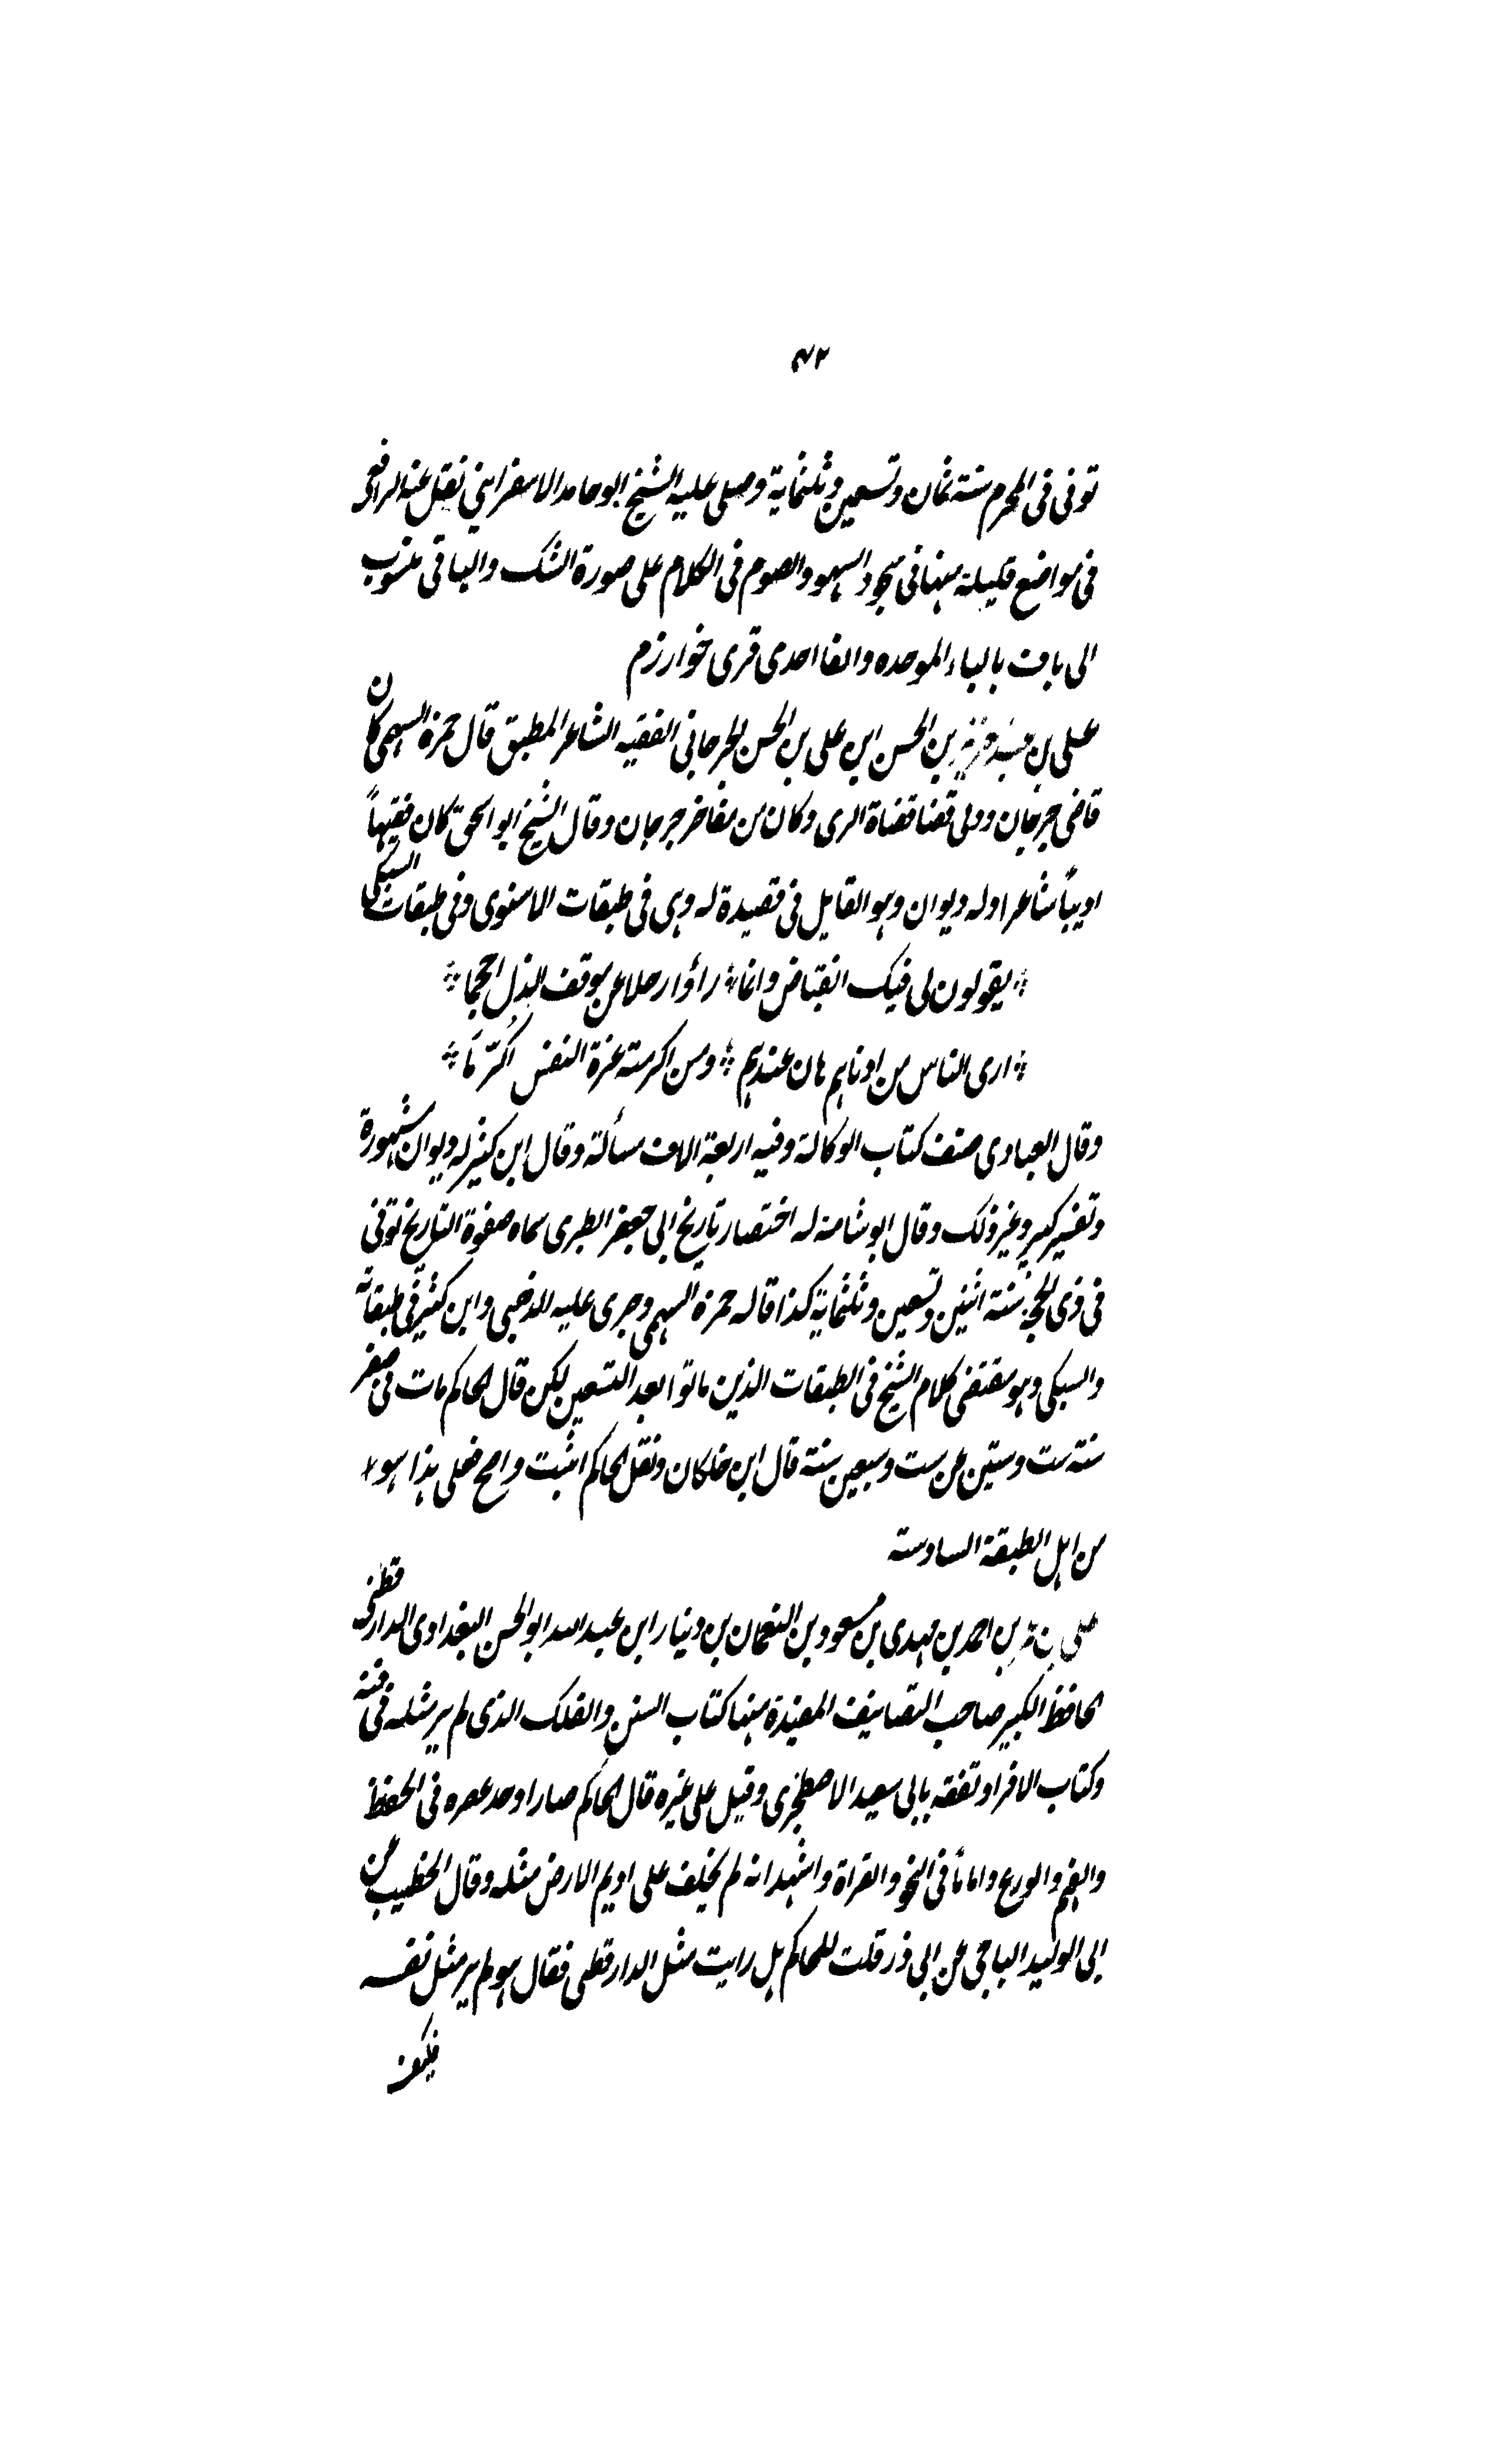 ٤٢
توفى فى المحرم سنة ثمان وتسعين وثلثماية وصلى عليه الشيخ ابو حامد الاسفراينى نقل عنه الرافعى
فى مواضع قليلة منها فى سجود السهو والصوم فى الكلام على صورة الشك والبافى منسوب
الى باف بالباء الموحده والفا احدى قرى خوارزم
على بن عبد العزيز بن الحسن ابن على بن الحسن الجرجانى الفقيه الشاعر المطبق قال حمزة السهمى كان
قاضى جرجان وولى قضا قضاة الرى وكان من مفاخر جرجان وقال الشيخ ابو اسحق كان فقيهاً
اديباً شاعرا وله ديوان وهو القايل فى قصيدة له وهى فى طبقات الاسنوى وفى طبقات السبكى
* يقولون لى فيك انقباض وانما * رأوا رجلا عن موقف الذل احجما *
* ارى الناس من ادناهم هان عندهم * ومن اكرمته عزة النفس اُكرّمَا *
وقال العبادى صنف كتاب الوكالة وفيه اربعة الاف مسألة وقال ابن كثير له ديوان مشهورة
وتفسير كبير وغير ذلك وقال ابو شامة له اختصار تاريخ ابى جعفر الطبرى سماه صفوة التاريخ توفى
فى ذى الحجة سنة اثنين وتسعين وثلثماية كذا قاله حمزة السهمى وجرى عليه الذهبى وابن كثير فى طبقاته
والسبكى وهو مقتضى كلام الشيخ فى الطبقات الذين ماتوا بعد التسعين لكن قال الحاكم مات فى صفر
سنة ست وستين عن ست وسبعين سنة قال ابن خلكان ونقل الحاكم اثبت واصح فعلى هذا هو
من اهل الطبقة السادسة
على بن عمر بن احمد بن مهدى بن مسعود بن النعمان بن دينار ابن عبد الله ابو الحسن البغدادى الدارقطنى
الحافظ الكبير صاحب التصانيف المفيدة منها كتاب السنن والعلل الذى لم ير مثله فى فنه
وكتاب الافراد تفقه بابى سعيد الاصطخرى وقيل على غيره قال الحاكم صار اوحد عصره فى الحفظ
والفهم والورع واماماً فى النحو والقراة واشهد انه لم يخلف على اديم الارض مثله وقال الخطيب عن
ابى الوليد الباجى عن ابى ذر قلت للحاكم هل رايت مثل الدارقطنى فقال هو لم ير مثل نفسه
فكيف